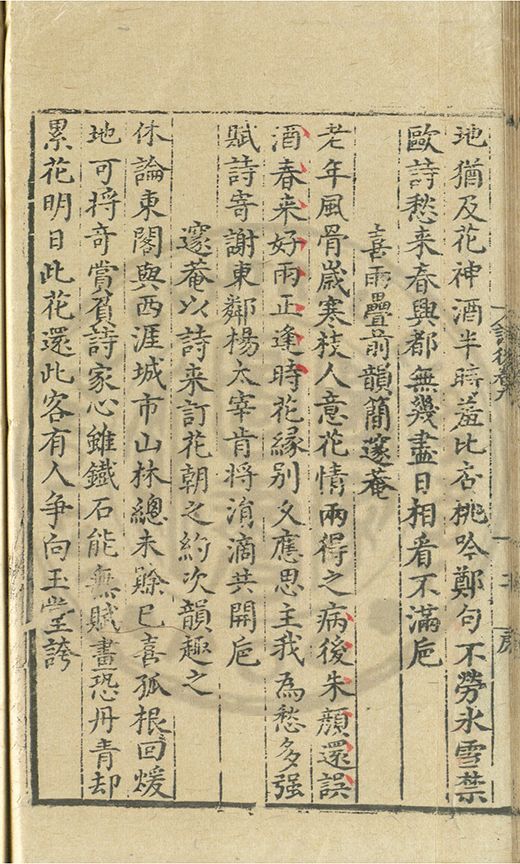 地猶及花神酒半時羞比杏桃吟鄭句不勞氷雪禁
歐詩愁来春興都無幾盡日相看不滿巵
喜雨疊前韻簡邃菴
老年風骨歳寒枝人意花情兩得之病後朱顔還誤
酒春来好雨正逢時花縁别乆應思主我為愁多强
賦詩寄謝東鄰楊太宰肯将涓滴共開巵
邃菴以詩来訂花朝之約次韻趣之
休論東閣與西涯城市山林總未賖已喜孤根回煖
地可捋奇賞貧詩家心雖鐵石能無賦畫恐丹青却
累花明日此花還此客有人争向玉堂誇